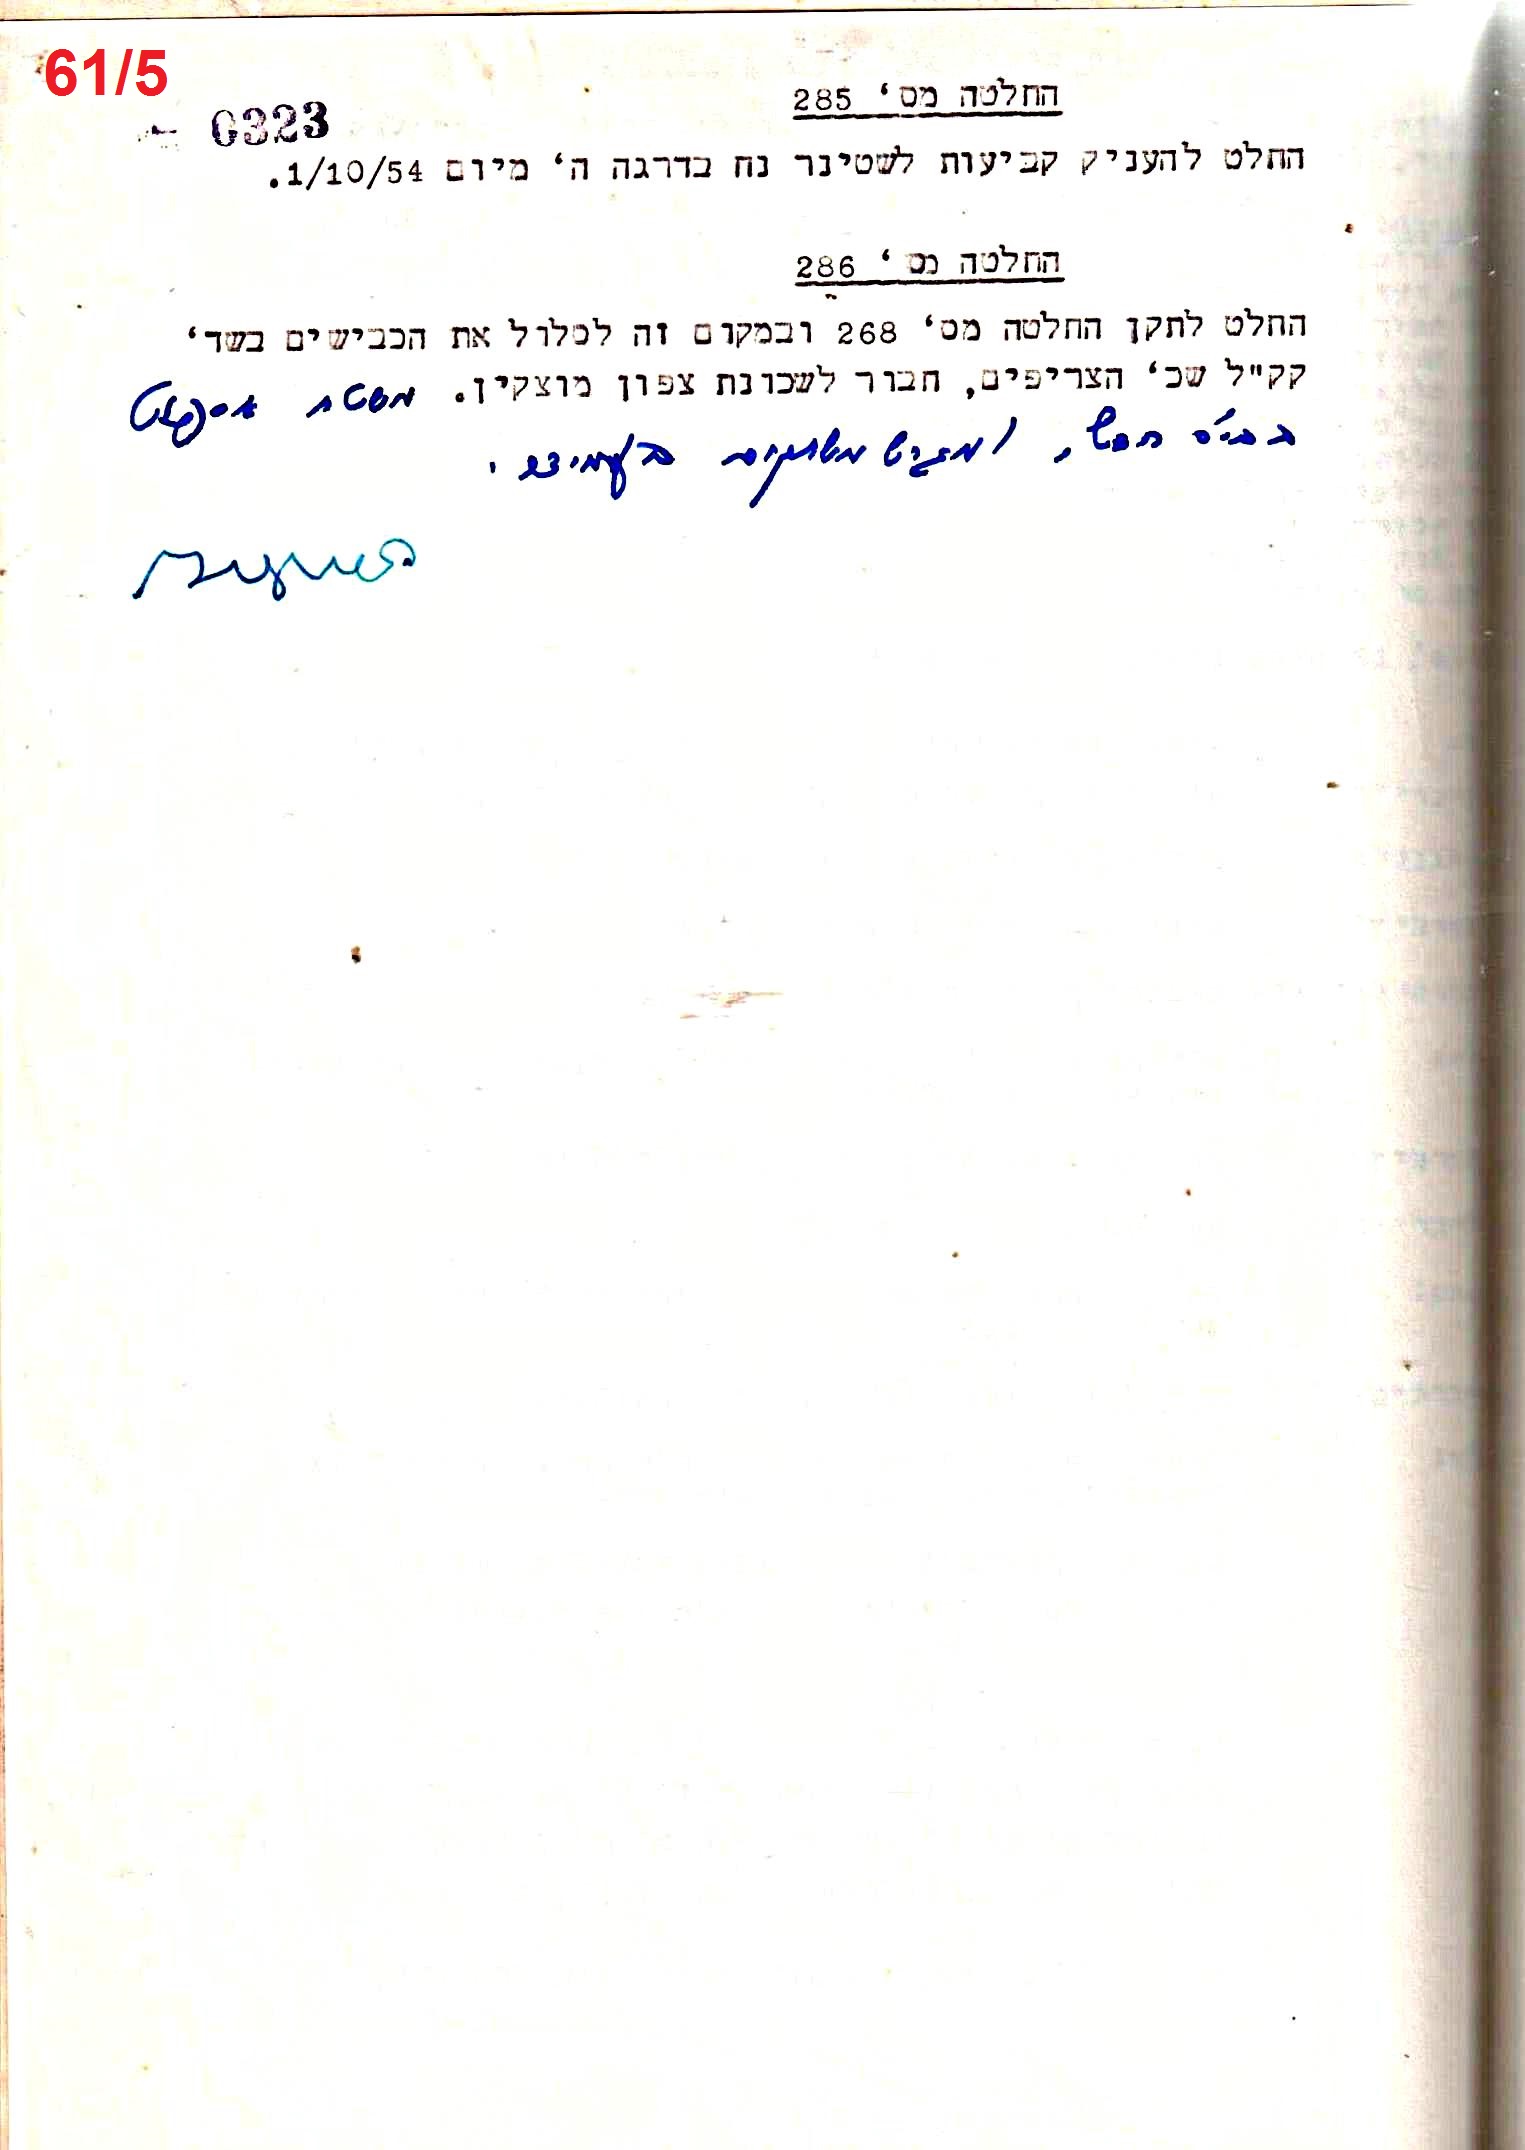 61/5
0323
החלטה מס' 285
החלט להעניק קביעות לשטינר נח בדרגה ה' מיום 1/10/54.
החלטה מס' 286
החלט לתקן החלטה מס' 268 ובמקום זה לכלול את הכבישים בשד'
קק"ל שכ' הצריפים, חבור לשכונת צפון מוצקין. משטח אספלט
ומגרש משחקים